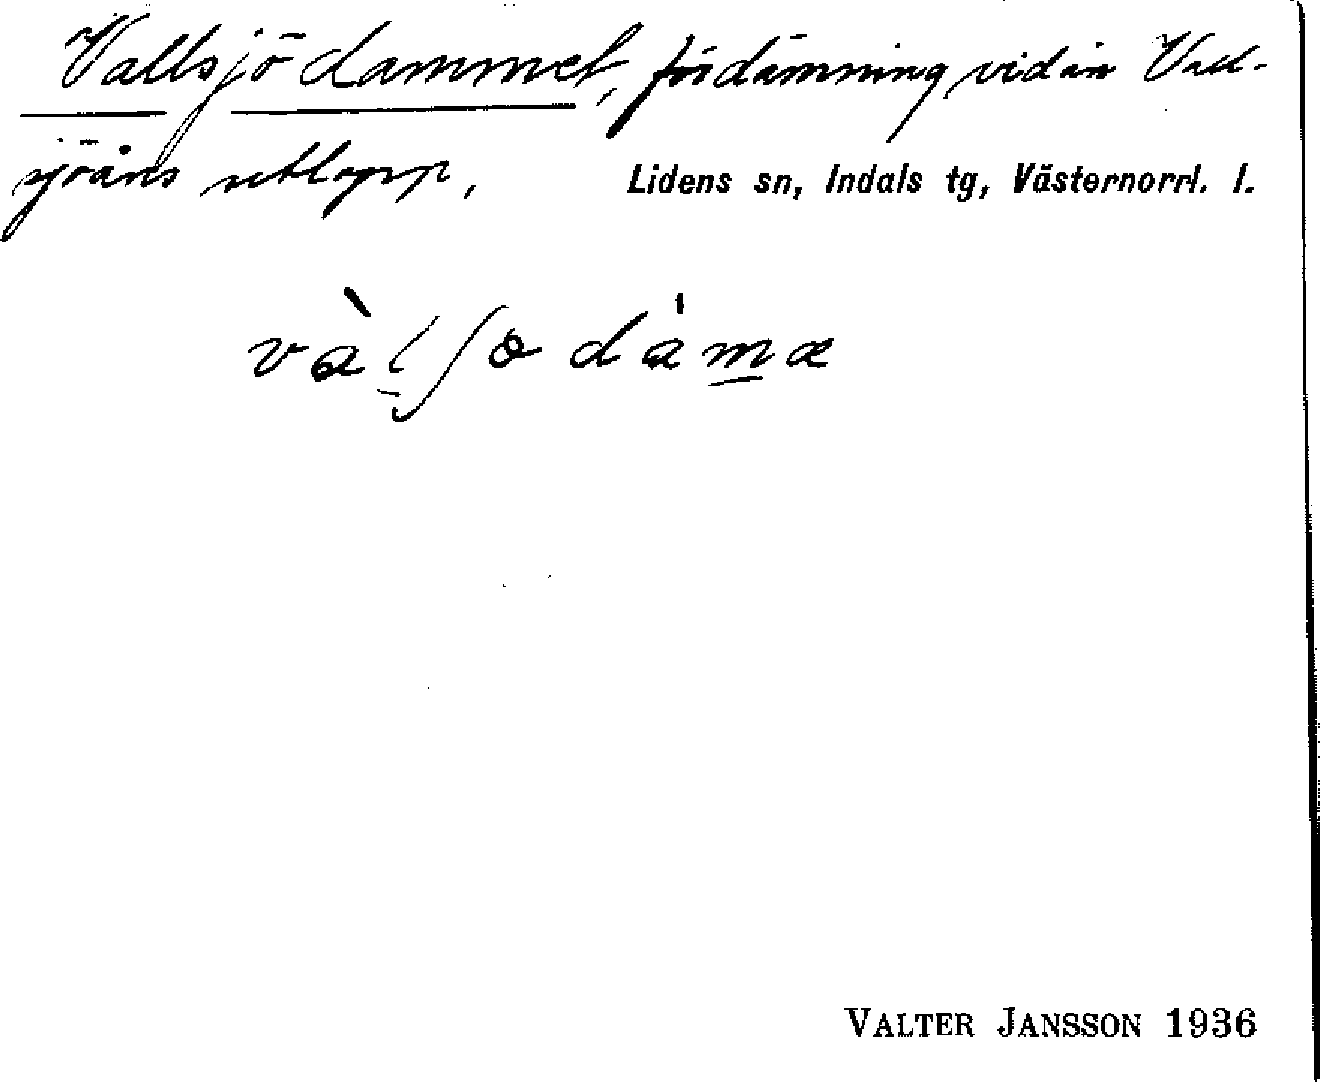 Vallsjödammet, fördämning vid ån Vall-
sjöåns utlopp, Lidens sn, Indals tg, Västernorrl. l.
vàl̠ʃɵ dám̠æ
VALTER JANSSON 1936